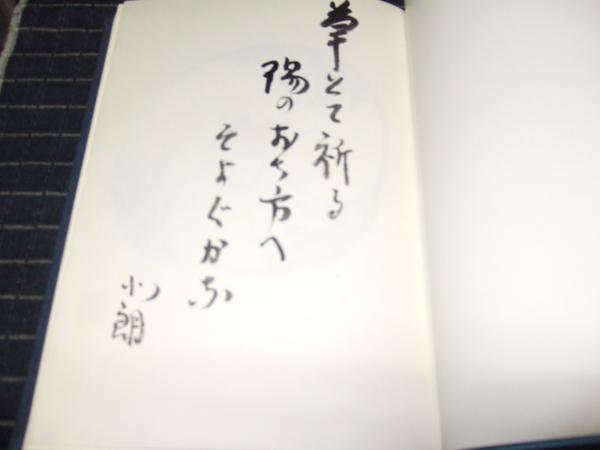 草とて祈る
陽のおち方へ
そよぐかな
小朗